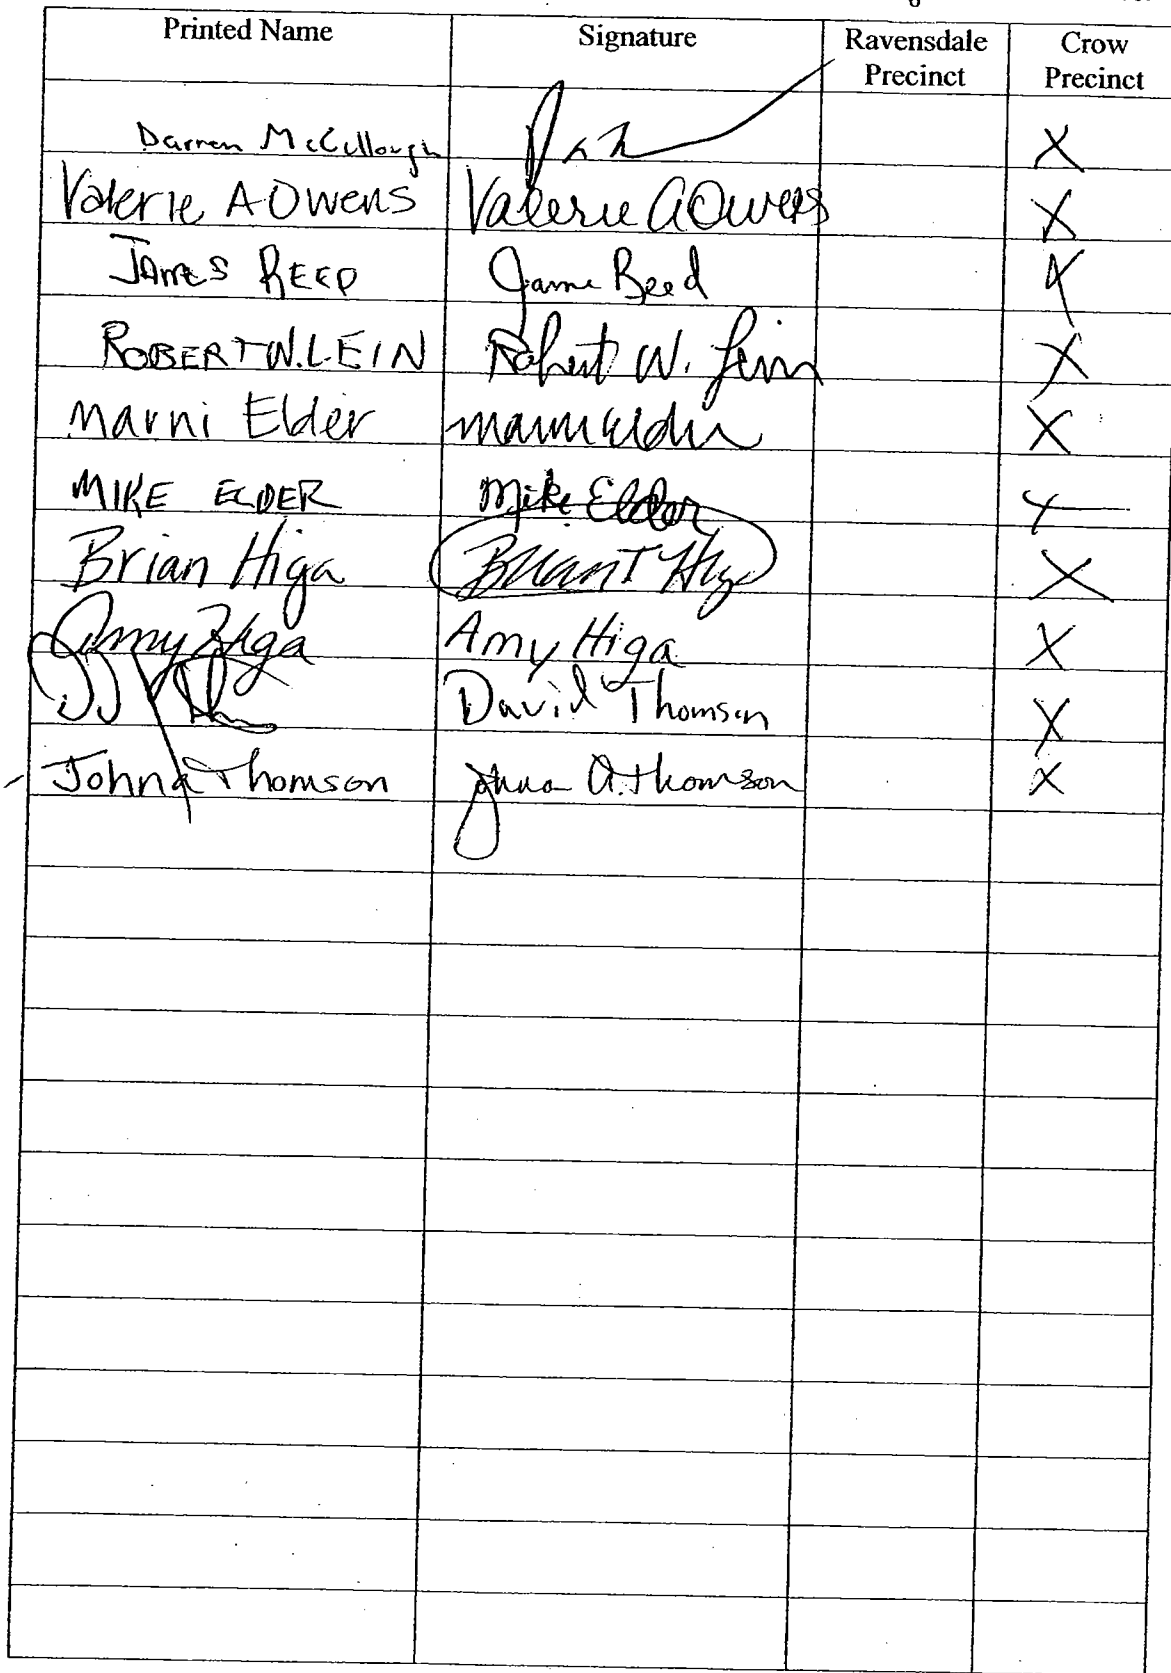 Printed Name Signature Ravensdale Precinct Crow Precinct
Darren McCullough X
Valerie A Owens Valerie A Owens X
JAMES REED Jame Reed X
ROBERT W. LEIN Robert W. Lein X
Marni Elder Marni Elder X
MIKE ELDER Mike Elder X
Brian Higa Brian T Higa X
Amy Higa Amy Higa X
David Thomson X
Johna Thomson Johna A. Thomson X